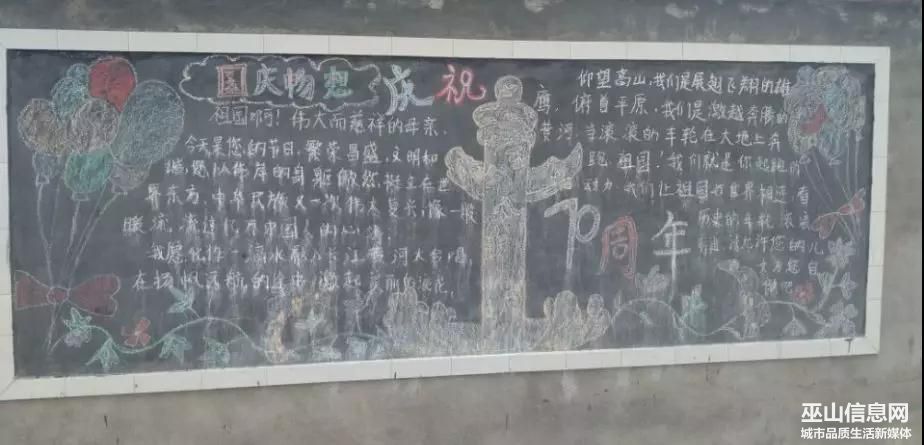 国庆畅想
庆祝
祖国啊！伟大而慈祥的母亲，
今天是您的节日，繁荣昌盛，文明和
谐，您以伟岸的身躯傲然挺立在世
界东方，中华民族又一次伟大复兴，像一股
暖流，流过亿万中国人的心
我愿化作一滴水融入长江黄河大合唱，
在扬帆远航的 中激起 前的浪花，
仰望高山，我们是展翅飞翔的雄
鹰，俯首平原，我们是激越奔腾的
黄河，当滚滚的车轮在大地上奔
跑，祖国，我们就是你起跑的
动力，我们让祖国与世界相连，看
历史的车轮滚滚
70周年
巫山信息网
城市品质生活新媒体